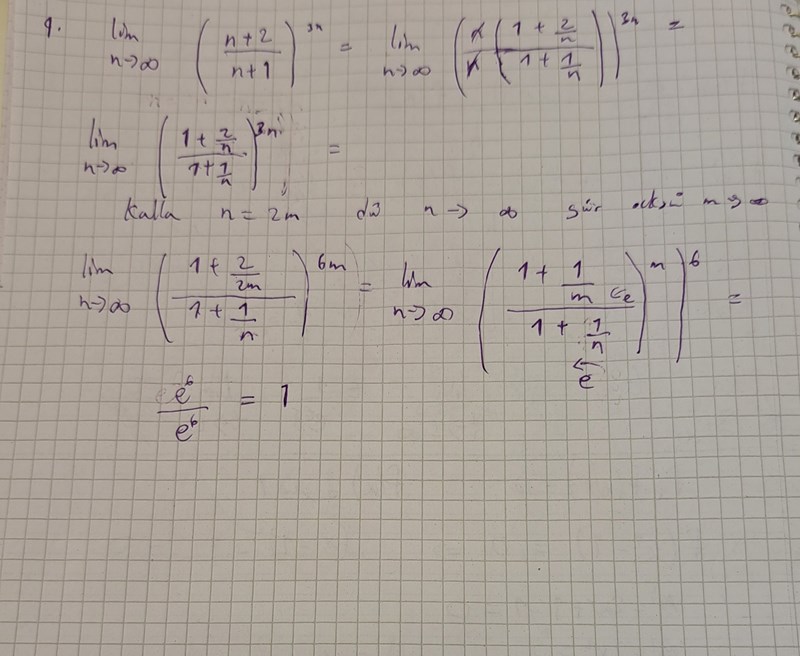 9. lim n→∞ ( (n+2)/(n+1) )^3n = lim n→∞ ( n(1 + 2/n) / n(1 + 1/n) )^3n =
lim n→∞ ( (1 + 2/n) / (1 + 1/n) )^3n =
Kalla n = 2m då n → ∞ går också m → ∞
lim n→∞ ( (1 + 2/2m) / (1 + 1/n) )^6m = lim n→∞ ( ( (1 + 1/m) ← e / (1 + 1/n) )^m )^6 =
← e
e^6 / e^6 = 1